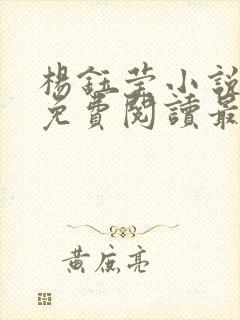 楊鈺瑩小說
免費閱讀最
黃庭亮